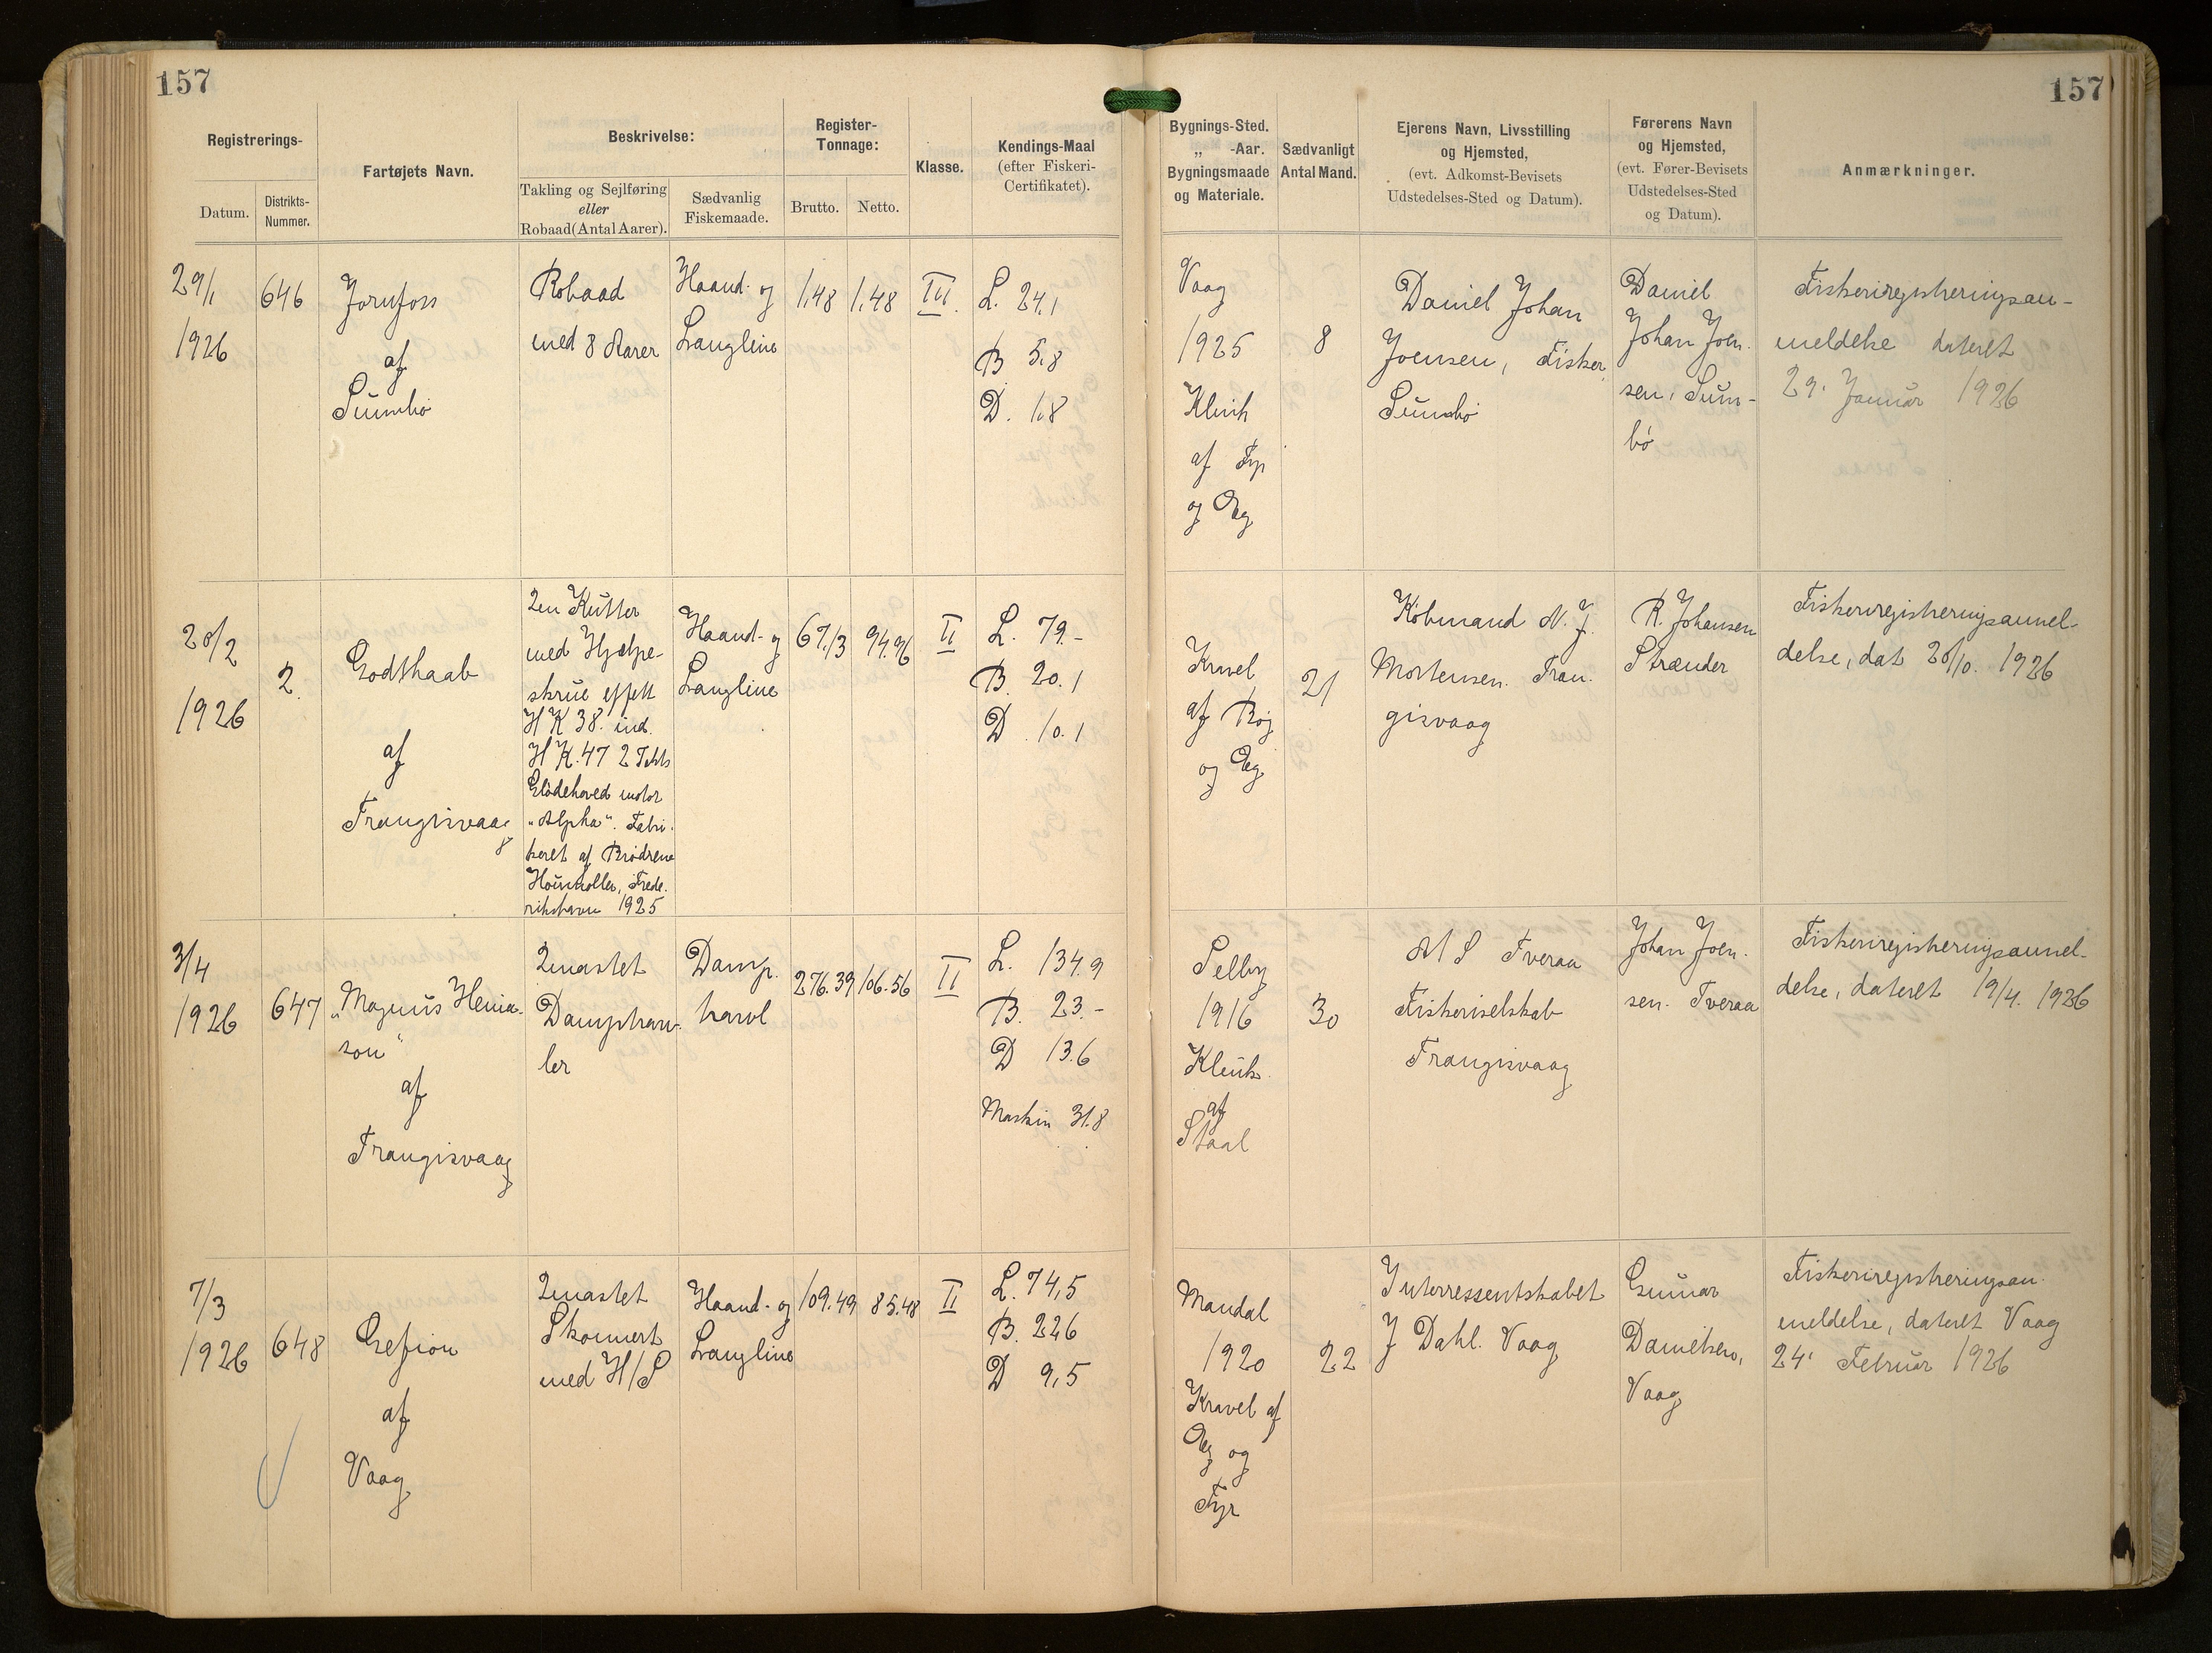 157
157
Registrerings-
Datum.
Distrikts-
Nummer.
Fartøjets Navn.
Beskrivelse:
Takling og Sejlføring
eller
Robaad (Antal Aarer).
Sædvanlig
Fiskemaade.
Register-
Tonnage:
Brutto.
Netto.
Klasse.
Kendings-Maal
(efter Fiskeri-
Certifikatet).
Bygnings-Sted.
„ -Aar.
Bygningsmaade
og Materiale.
Sædvanligt
Antal Mand.
Ejerens Navn, Livsstilling
og Hjemsted,
(evt. Adkomst-Bevisets
Udstedelses-Sted og Datum).
Førerens Navn
og Hjemsted,
(evt. Fører-Bevisets
Udstedelses-Sted
og Datum).
Anmærkninger.
29/1
1926
646
af
Sumbö
Robaad
med 8 Aarer
Haand- og
Langline
1,48
1,48
III.
L. 24,1
B 5,8
D. 1,8
Vaag
1925
Klink
af Fyr
og Eg
8
Daniel Johan
Joensen, Fisker,
Sumbö
Daniel
Johan Joen-
sen, Sum-
bö
Fiskeriregistreringsan-
meldelse dateret
29' Januar 1926
20/2
1926
2.
Godthaab
af
Trangisvaag
2m Kutter
med Hjælpe-
skrue effekt
H K 38. ind.
H K. 47 2 Takts
Glödehoved motor
"Alpha". Fabri-
keret af Brödrene
Houmöller, Frede-
rikshavn 1925
Haand- og
Langline
67.13
II
L. 79.-
B. 20.1
D. 10.1
Kravel
af Bög
og Eg
21
Köbmand N. J.
Mortensen. Tran-
gisvaag
R. Johansen
Strænder
Fiskeriregistreringsanmel-
delse, dat 20/10. 1926
3/4
1926
647
"Magnus Heina-
son"
af
Trangisvaag
2mastet
Damptraw-
ler
Damp.
trawl
276.39
106.56
II
L. 134.9
B. 23.-
D 13.6
Maskin 31.8
Selby
1916
Klink
af
Staal
30
A S Tveraa
Fiskeriselskab
Trangisvaag
Johan Joen-
sen. Tveraa
Fiskeriregistreringsanmel-
delse, dateret 19/4. 1926
7/3
1926
648
Gefion
af
Vaag
2mastet
Skonnert
med H/S
Haand- og
Langline
109.49
85.48
II
L. 74,5
B. 22,6
D 9,5
Mandal
1920
Kravel af
Eg og
Fyr
22
Interressentskabet
J Dahl. Vaag
Gunnar
Danielsen,
Vaag
Fiskeriregistreringsan-
meldelse, dateret Vaag
24' Februar 1926